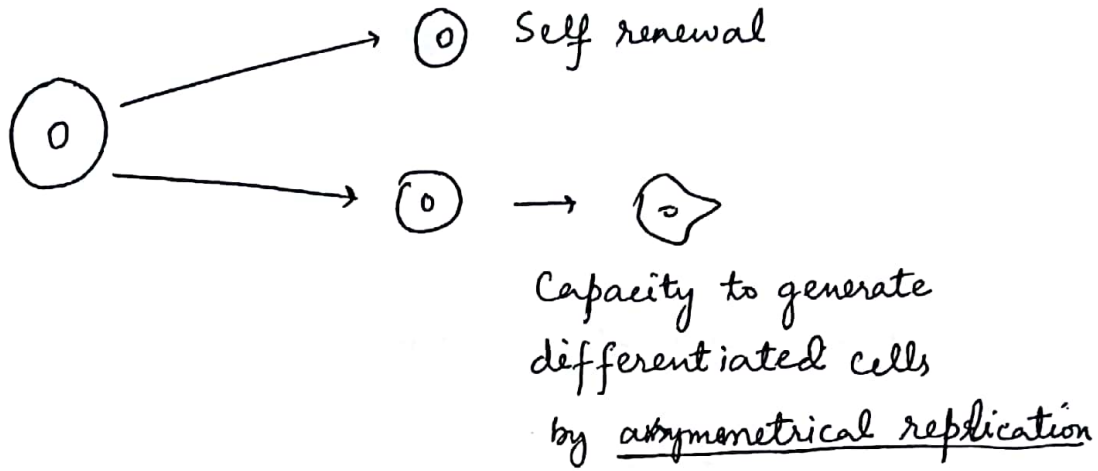 Self renewal
Capacity to generate
differentiated cells
by assymmetrical replication